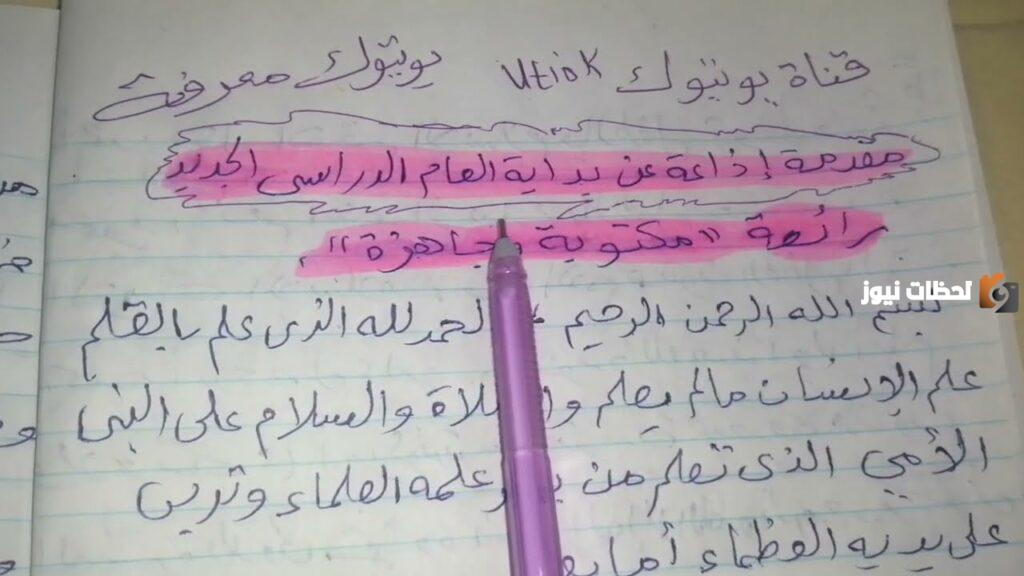 قناة يوتيوك Utiok يوتيوك معرفة
مقدمة إذاعة عن بداية العام الدراسى الجديد
رائعة "مكتوبة جاهزة"
لحظات نيوز
بسم الله الرحمن الرحيم الحمد لله الذى علم بالقلم
علم الإنسان مالم يعلم والصلاة والسلام على النبى
الأمي الذى تعلم من علمه العلماء وتربى
على يديه العظماء أما بعد